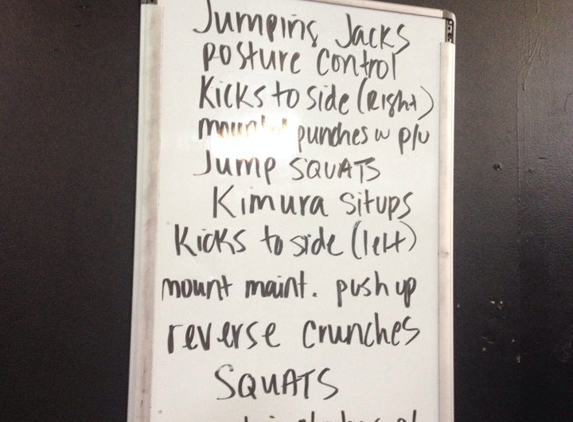 Jumping Jacks
posture control
Kicks to side (Right)
punches w p/u
Jump SQUATS
Kimura situps
Kicks to side (left)
mount maint. push up
reverse crunches
SQUATS